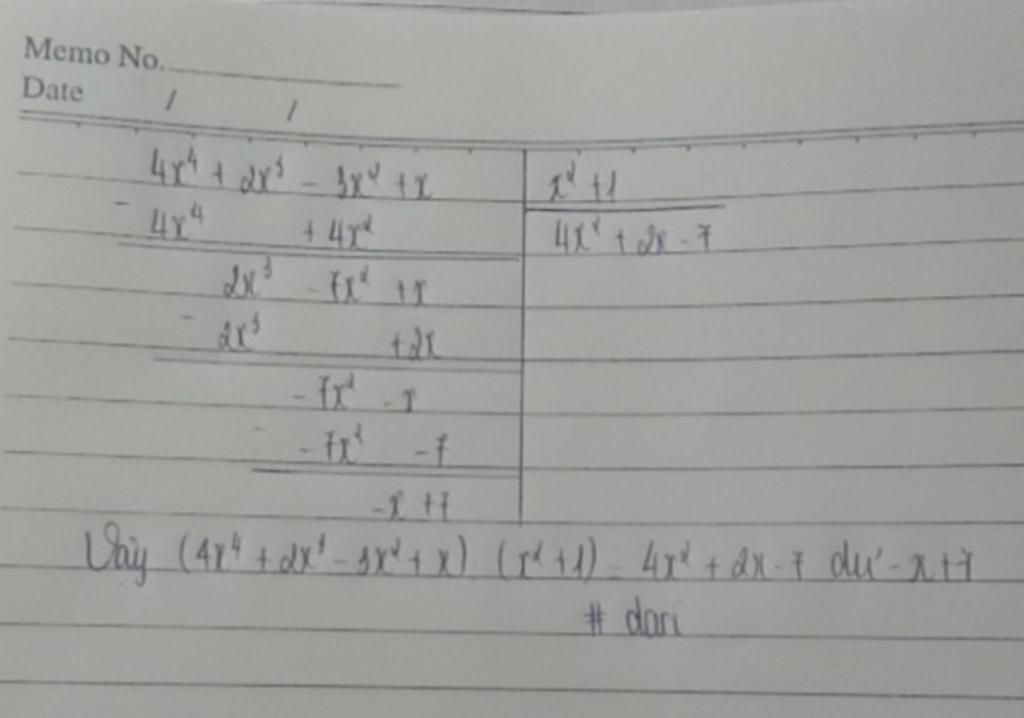 Memo No.
Date / /
4x⁴ + 2x³ - 3x² + x | x² + 1
- 4x⁴ + 4x² | 4x² + 2x - 7
2x³ - 7x² + x
- 2x³ + 2x
- 7x² - x
- - 7x² - 7
- x + 7
Vậy (4x⁴ + 2x³ - 3x² + x) (x² + 1) = 4x² + 2x - 7 dư - x + 7
# dari